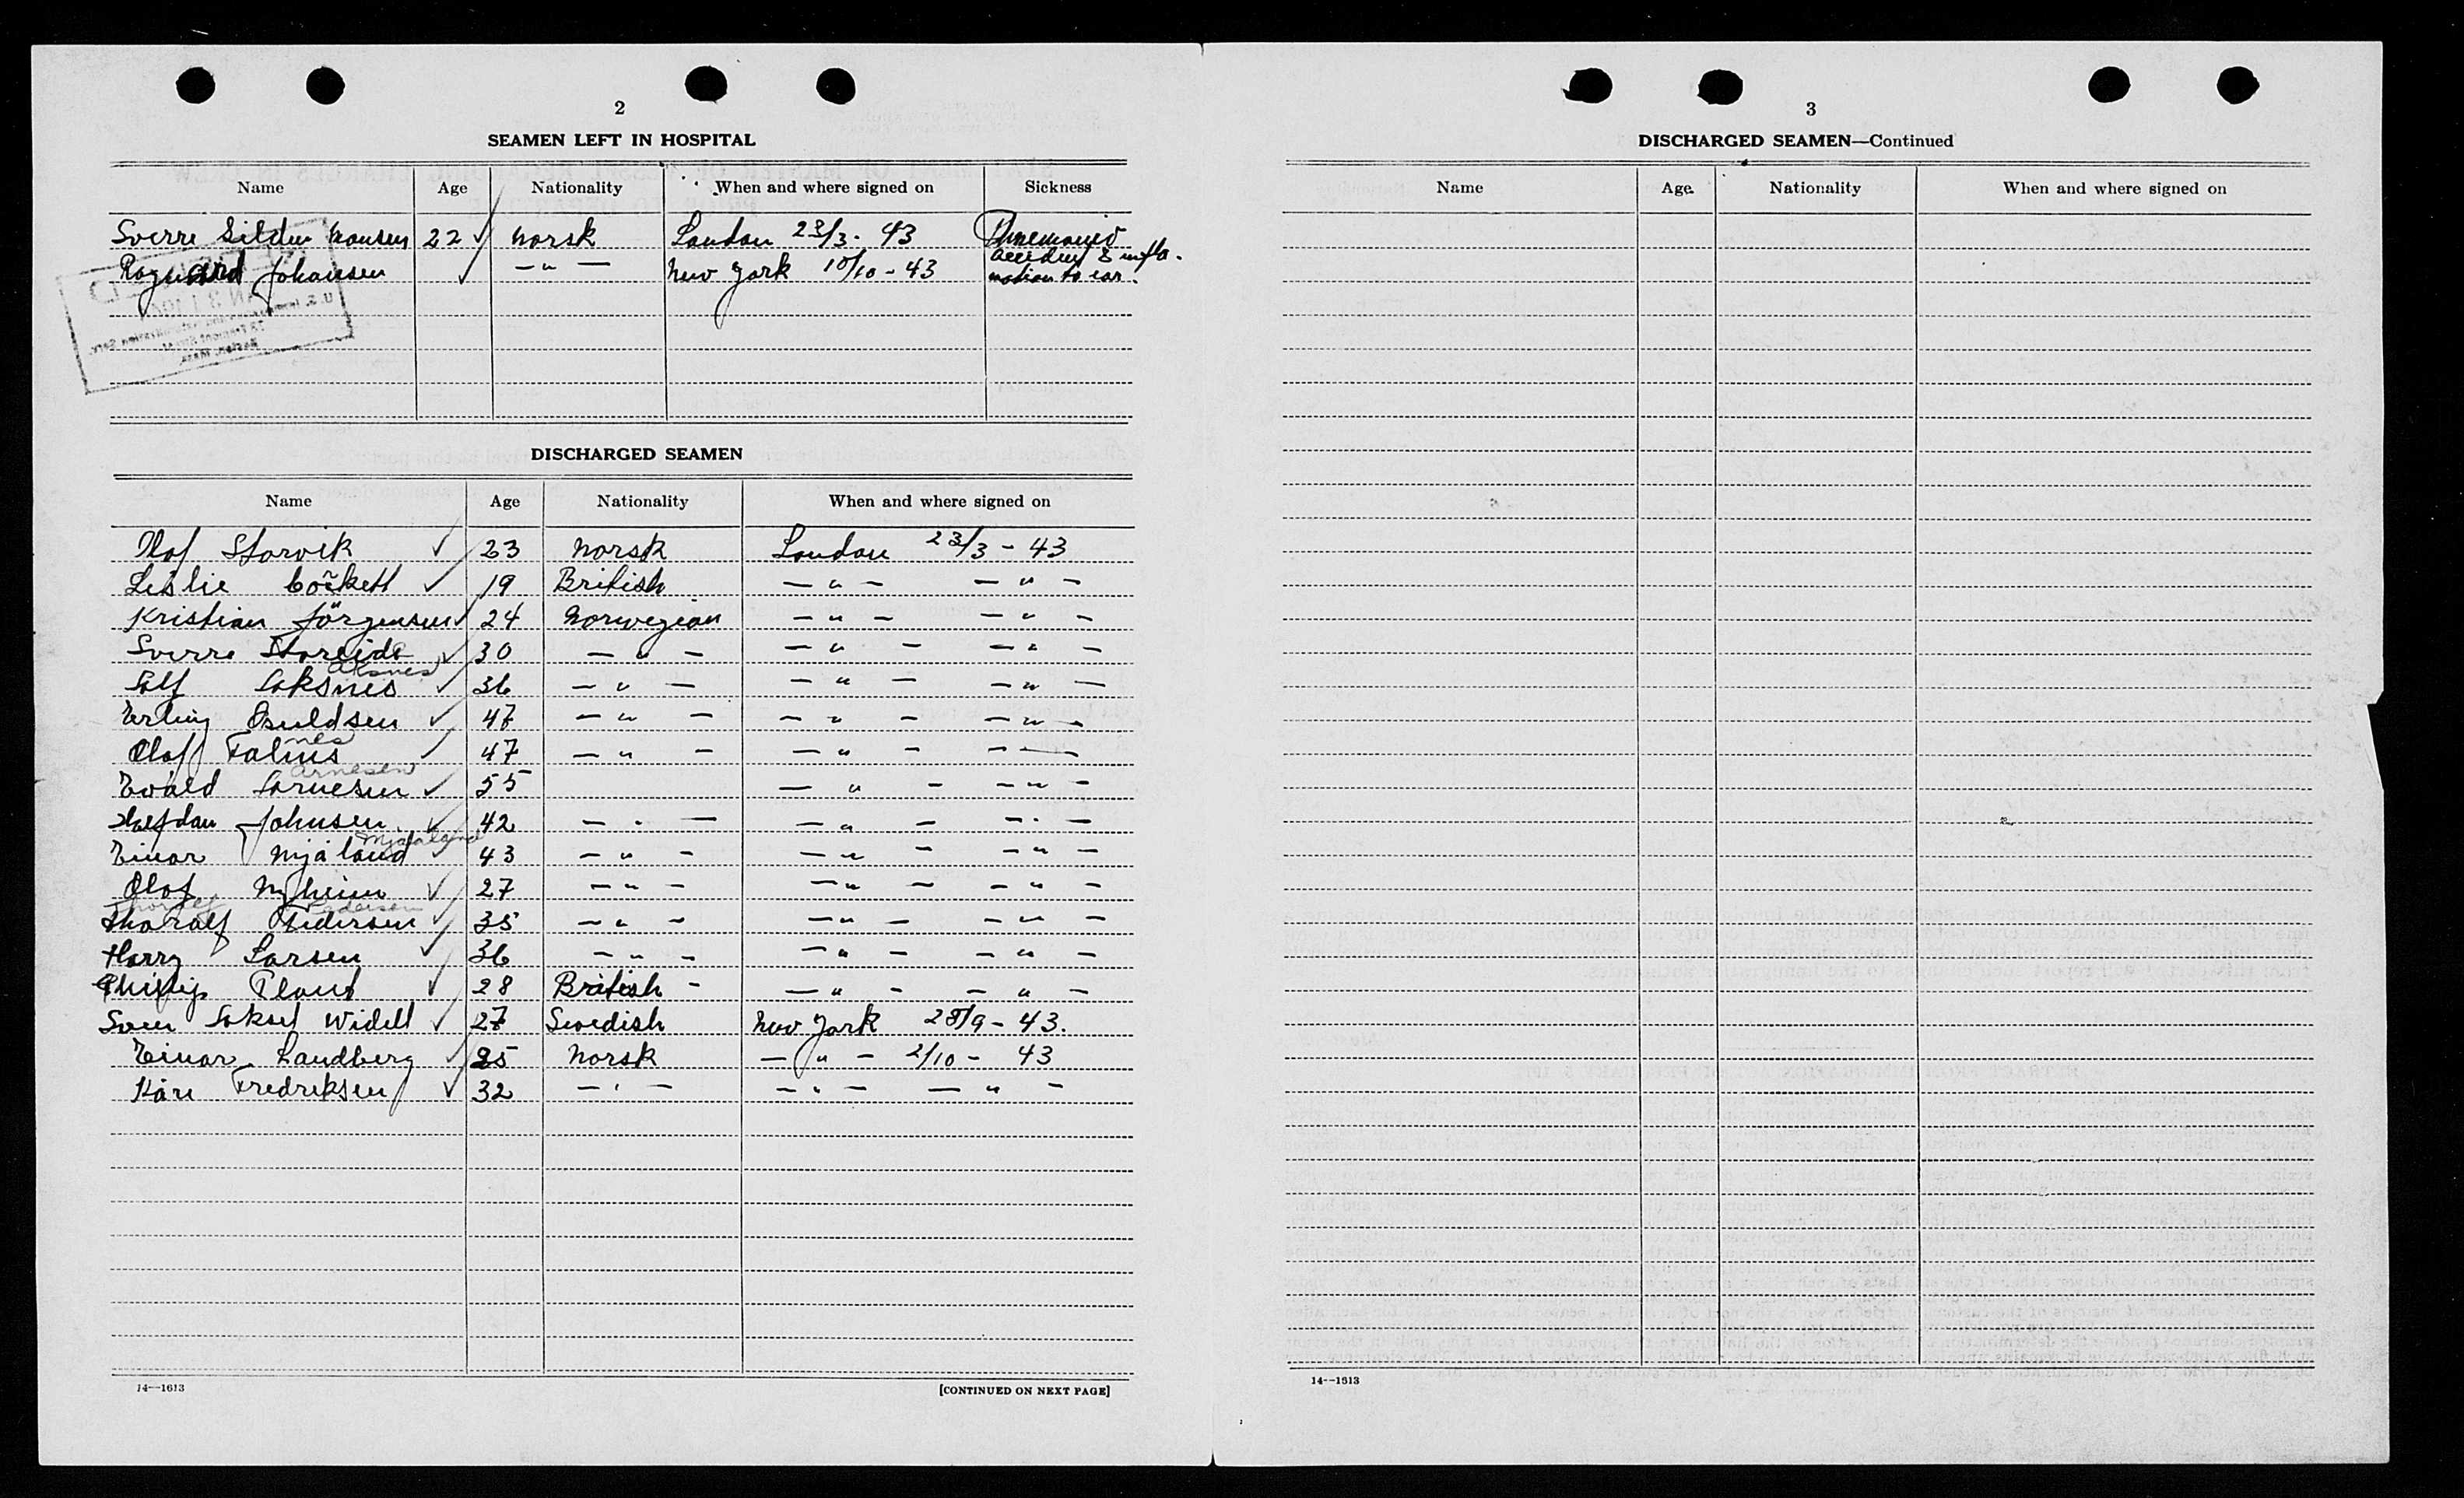 2
SEAMEN LEFT IN HOSPITAL
Name Age Nationality When and where signed on Sickness
Sverre Hansen 22 Norsk London 23/3 - 43
Ragnard Johansen — " — New York 10/10 - 43 & infla-
mation to ear.
DISCHARGED SEAMEN
Name Age Nationality When and where signed on
Olaf Storvik 23 Norsk London 23/3 - 43
Leslie 19 British — " — — " —
Kristian Jörgensen 24 Norwegian — " — — " —
Sverre Storeide 30 — " — — " — — " —
Aksnes
Alf Aksnes 36 — " — — " — — " —
Erling 47 — " — — " — — " —
nes
Olaf Falnes 47 — " — — " — — " —
Arnesen
Evald Arnesen 55 — " — — " —
Halfdan Johnsen 42 — " — — " — — " —
Mjåland
Einar Mjåland 43 — " — — " — — " —
Olaf Nyheim 27 — " — — " — — " —
Thoralf Pedersen
Thoralf Pedersen 35 — " — — " — — " —
Harry Larsen 36 — " — — " — — " —
Philip 28 British - — " — — " —
Sven Aksel Widell 27 Swedish New York 28/9 - 43.
Einar Landberg 25 Norsk — " — 2/10 - 43
Kåre Fredriksen 32 — " — — " — — " —
14—1613
[CONTINUED ON NEXT PAGE]
3
DISCHARGED SEAMEN—Continued
Name Age Nationality When and where signed on
14—1613